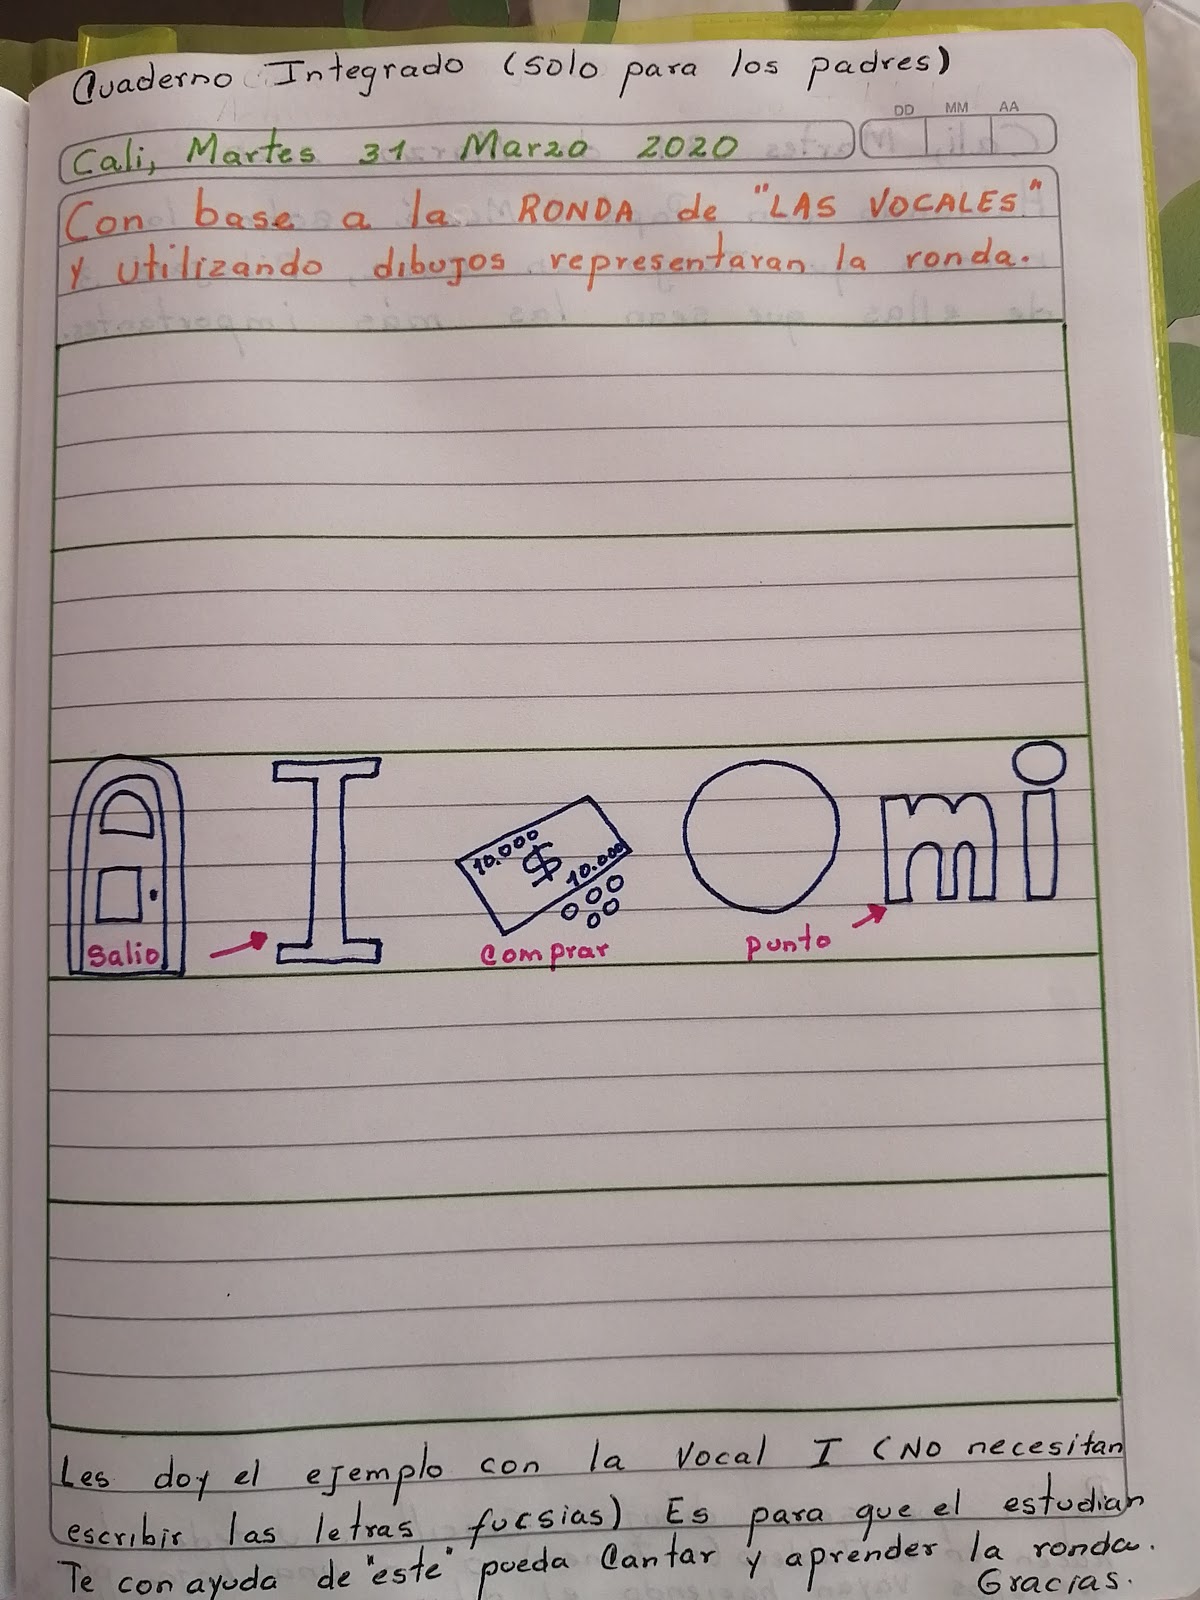 Cuaderno Integrado (solo para los padres)
DD MM AA
Cali, Martes 31 Marzo 2020
Con base a la RONDA de "LAS VOCALES"
y utilizando dibujos representaran la ronda.
I O mi
10.000 $ 10.000
Salio comprar punto
Les doy el ejemplo con la vocal I (No necesitan
escribir las letras fucsias) Es para que el estudian
Te con ayuda de "este" pueda cantar y aprender la ronda.
Gracias.